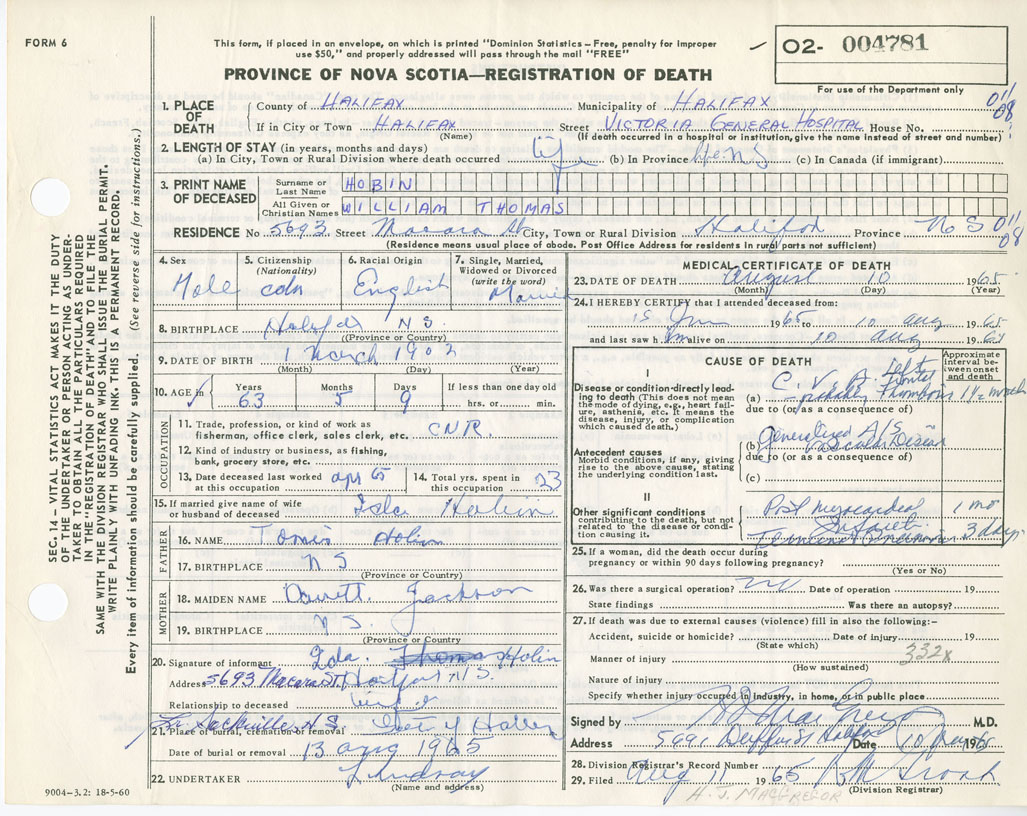 FORM 6
This form, if placed in an envelope, on which is printed "Dominion Statistics – Free, penalty for improper
use $50," and properly addressed will pass through the mail "FREE"
02- 004781
PROVINCE OF NOVA SCOTIA—REGISTRATION OF DEATH
For use of the Department only
1. PLACE OF DEATH
County of HALIFAX Municipality of HALIFAX 011
08
If in City or Town HALIFAX Street VICTORIA GENERAL HOSPITAL House No.
(Name) (If death occurred in a hospital or institution, give the name instead of street and number)
2. LENGTH OF STAY (in years, months and days)
(a) In City, Town or Rural Division where death occurred life (b) In Province life N S (c) In Canada (if immigrant)
3. PRINT NAME OF DECEASED
Surname or Last Name HOBIN
All Given or Christian Names WILLIAM THOMAS
RESIDENCE No. 5693 Street Macara St City, Town or Rural Division Halifax Province N S 011
08
(Residence means usual place of abode. Post Office Address for residents in rural parts not sufficient)
4. Sex
Male
5. Citizenship
(Nationality)
cdn
6. Racial Origin
English
7. Single, Married,
Widowed or Divorced
(write the word)
Married
8. BIRTHPLACE Halifax N S.
(Province or Country)
9. DATE OF BIRTH 1 March 1902
(Month) (Day) (Year)
10. AGE Years Months Days If less than one day old
63 5 9 hrs. or min.
OCCUPATION
11. Trade, profession, or kind of work as
fisherman, office clerk, sales clerk, etc. CNR
12. Kind of industry or business, as fishing,
bank, grocery store, etc.
13. Date deceased last worked
at this occupation apr 65
14. Total yrs. spent in
this occupation 23
15. If married give name of wife
or husband of deceased Hobin
FATHER
16. NAME Hobin
17. BIRTHPLACE N S
(Province or Country)
MOTHER
18. MAIDEN NAME Jackson
19. BIRTHPLACE N S.
(Province or Country
20. Signature of informant Ida. Hobin
Address 5693 Macara ST. Halifax N S.
Relationship to deceased
21. Place of burial, cremation or removal
Sackville N S
Date of burial or removal 13 aug 1965
22. UNDERTAKER Lindsay
(Name and address)
MEDICAL CERTIFICATE OF DEATH
23. DATE OF DEATH August 10 1965
(Month) (Day) (Year)
24. I HEREBY CERTIFY that I attended deceased from:
15 1965 to 10 aug 1965
and last saw him alive on 10 aug 196
CAUSE OF DEATH
Approximate
interval be-
tween onset
and death
I
Disease or condition-directly lead-
ing to death (This does not mean
the mode of dying, e.g., heart fail-
ure, asthenia, etc. It means the
disease, injury, or complication
which caused death.)
(a) C. V. A. left
- probably thrombosis 1½ month
due to (or/as a consequence of)
Antecedent causes
Morbid conditions, if any, giving
rise to the above cause, stating
the underlying condition last.
(b) Generalized A/S
Vascular Disease
due to (or as a consequence of)
(c)
II
Other significant conditions
contributing to the death, but not
related to the disease or condi-
tion causing it.
Post myocardial 1 mo
Infarct
Terminal Pneumonia 3 days
25. If a woman, did the death occur during
pregnancy or within 90 days following pregnancy?
(Yes or No)
26. Was there a surgical operation? no Date of operation 19
State findings Was there an autopsy?
27. If death was due to external causes (violence) fill in also the following:-
Accident, suicide or homicide? Date of injury 19
(State which)
Manner of injury 332x
(How sustained)
Nature of injury
Specify whether injury occurred in industry, in home, or in public place
Signed by M.D.
Address 5691 Halifax Date 10 196
28. Division Registrar's Record Number
29. Filed Aug 11 1965
(Division Registrar)
H. J. MACGREGOR
9004–3.2: 18-5-60
SEC. 14 – VITAL STATISTICS ACT MAKES IT THE DUTY
OF THE UNDERTAKER OR PERSON ACTING AS UNDER-
TAKER TO OBTAIN ALL THE PARTICULARS REQUIRED
IN THE "REGISTRATION OF DEATH" AND TO FILE THE
SAME WITH THE DIVISION REGISTRAR WHO SHALL ISSUE THE BURIAL PERMIT.
WRITE PLAINLY WITH UNFADING INK. THIS IS A PERMANENT RECORD.
Every item of information should be carefully supplied. (See reverse side for instructions.)